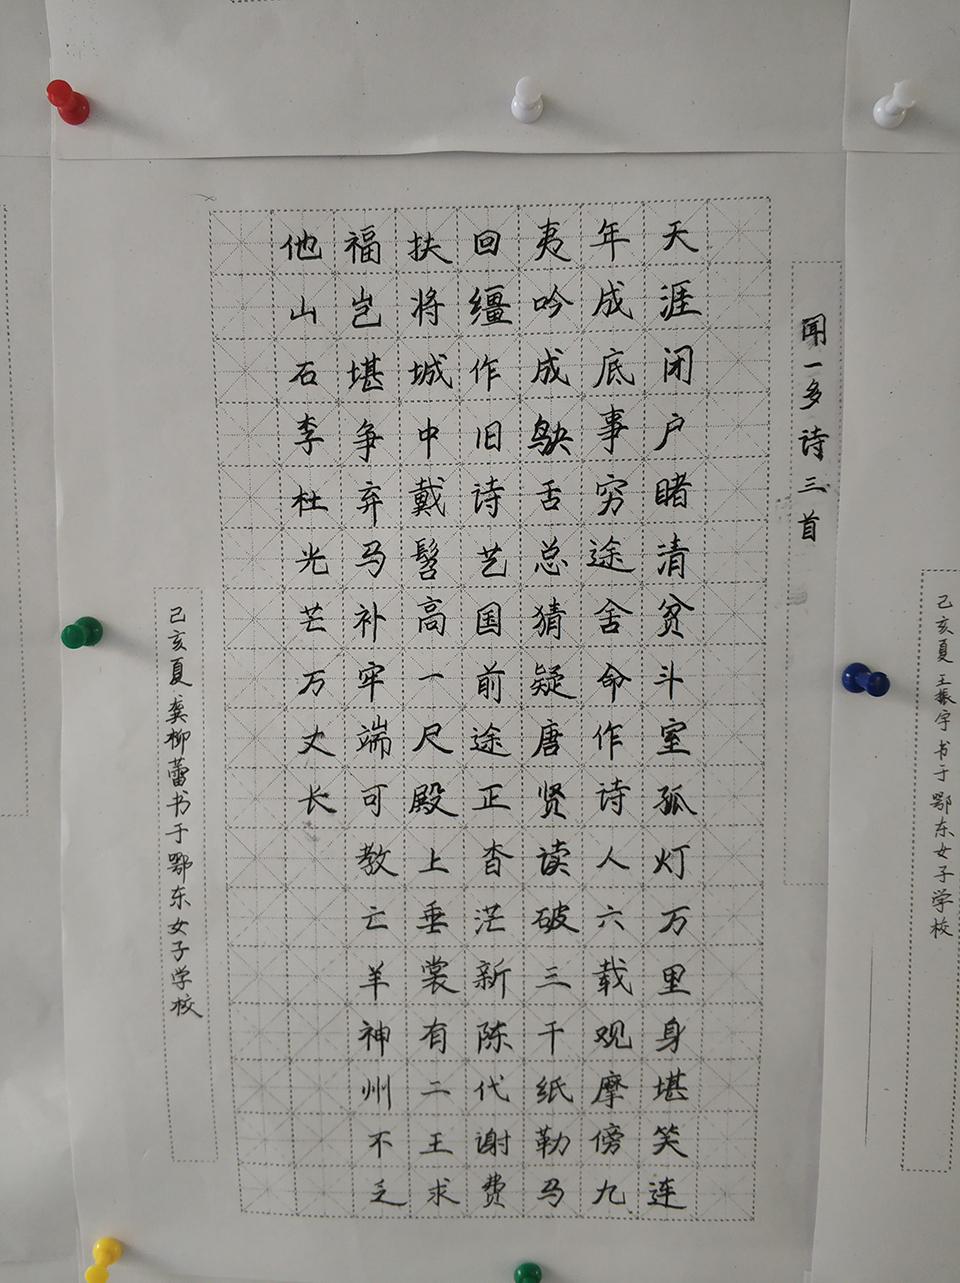 闻一多诗三首
天涯闭户睹清贫斗室孤灯万里身堪笑连
年成底事穷途舍命作诗人六载观摩傍九
夷吟成鴃舌总猜疑唐贤读破三千纸勒马
回缰作旧诗艺国前途正杳茫新陈代谢费
扶将城中戴髻高一尺殿上垂裳有二王求
福岂堪争弃马补牢端可教亡羊神州不乏
他山石李杜光芒万丈长
己亥夏龚柳蕾书于鄂东女子学校
己亥夏王振宇书于鄂东女子学校